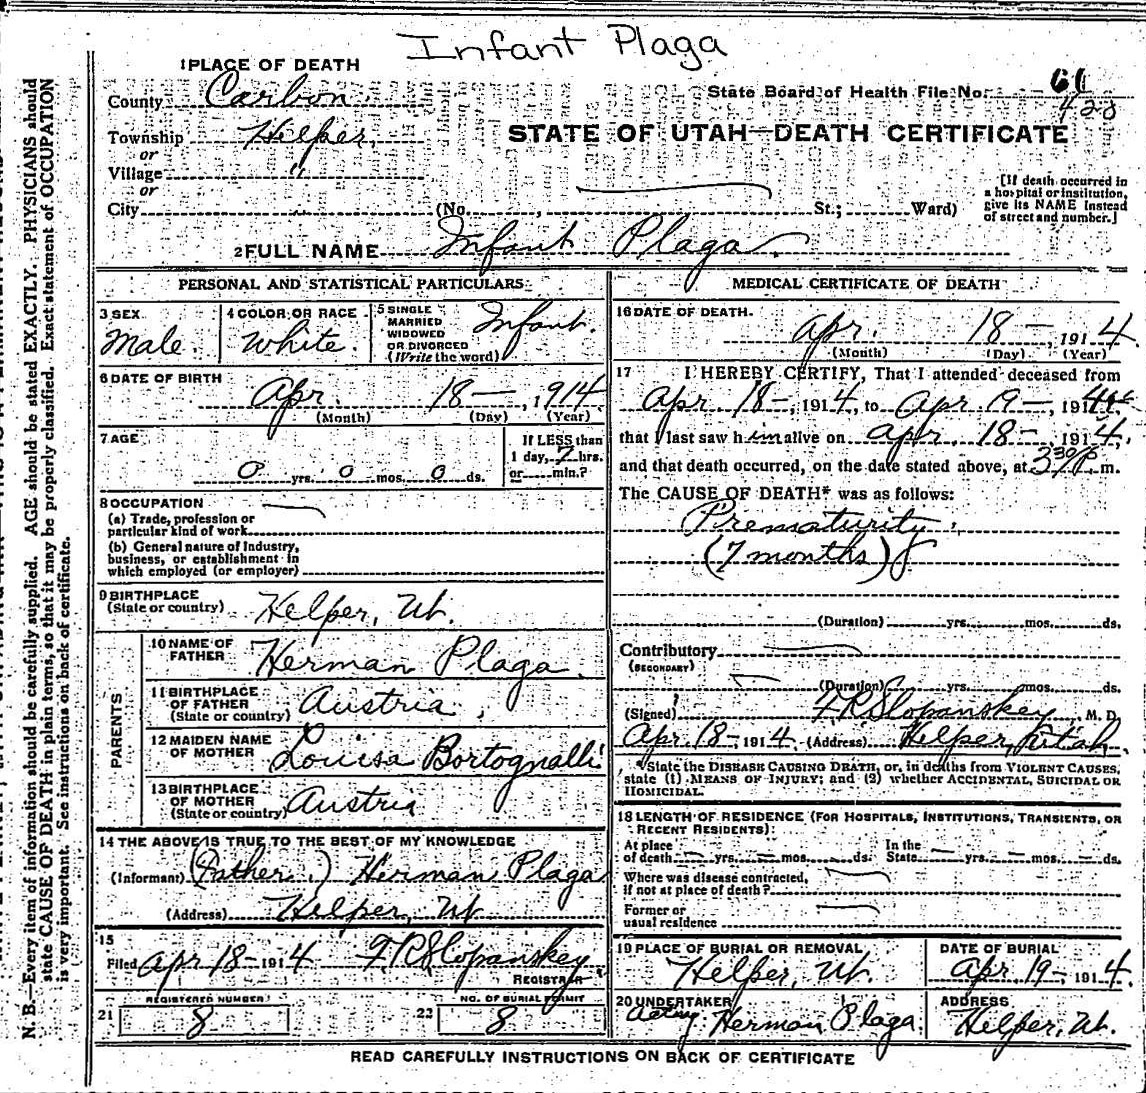 Infant Plaga
1 PLACE OF DEATH
County Carbon
State Board of Health File No. 61
428
Township Helper
or
Village "
or
City
STATE OF UTAH—DEATH CERTIFICATE
(No. , St.; Ward)
[If death occurred in a hospital or institution, give its NAME instead of street and number.]
2 FULL NAME Infant Plaga
PERSONAL AND STATISTICAL PARTICULARS
3 SEX Male.
4 COLOR OR RACE White.
5 SINGLE MARRIED WIDOWED OR DIVORCED (Write the word) Infant.
6 DATE OF BIRTH Apr. 18—, 1914
(Month) (Day) (Year)
7 AGE 0 yrs. 0 mos. 0 ds.
If LESS than 1 day, 7 hrs. or min.?
8 OCCUPATION
(a) Trade, profession or particular kind of work
(b) General nature of Industry, business, or establishment in which employed (or employer)
9 BIRTHPLACE (State or country) Helper, Ut.
PARENTS
10 NAME OF FATHER Herman Plaga.
11 BIRTHPLACE OF FATHER (State or country) Austria
12 MAIDEN NAME OF MOTHER Louisa Bortognalli
13 BIRTHPLACE OF MOTHER (State or country) Austria
14 THE ABOVE IS TRUE TO THE BEST OF MY KNOWLEDGE
(Informant) (Father.) Herman Plaga
(Address) Helper, Ut
15 Filed Apr 18—1914 F. R. Slopanskey.
REGISTRAR
REGISTERED NUMBER
21 8
NO. OF BURIAL PERMIT
22 8
MEDICAL CERTIFICATE OF DEATH
16 DATE OF DEATH. Apr. 18—, 1914.
(Month) (Day) (Year)
17 I HEREBY CERTIFY, That I attended deceased from
Apr. 18—, 1914, to Apr 19—, 1914
that I last saw him alive on Apr. 18—, 1914,
and that death occurred, on the date stated above, at 330 P m.
The CAUSE OF DEATH* was as follows:
Prematurity.
(7 months)
(Duration) yrs. mos. ds.
Contributory
(SECONDARY)
(Duration) yrs. mos. ds.
(Signed) F R Slopanskey, M. D.
Apr 18—1914. (Address) Helper, Utah
*State the DISEASE CAUSING DEATH, or, in deaths from VIOLENT CAUSES, state (1) MEANS OF INJURY; and (2) whether ACCIDENTAL, SUICIDAL OR HOMICIDAL.
18 LENGTH OF RESIDENCE (FOR HOSPITALS, INSTITUTIONS, TRANSIENTS, OR RECENT RESIDENTS):
At place of death — yrs. — mos. — ds. In the State — yrs. — mos. — ds.
Where was disease contracted, if not at place of death?
Former or usual residence
19 PLACE OF BURIAL OR REMOVAL Helper, Ut.
DATE OF BURIAL Apr. 19—1914.
20 UNDERTAKER Acting. Herman Plaga.
ADDRESS Helper, Ut.
READ CAREFULLY INSTRUCTIONS ON BACK OF CERTIFICATE
N. B.—Every item of information should be carefully supplied. AGE should be stated EXACTLY. PHYSICIANS should
state CAUSE OF DEATH in plain terms, so that it may be properly classified. Exact statement of OCCUPATION
is very important. See instructions on back of certificate.